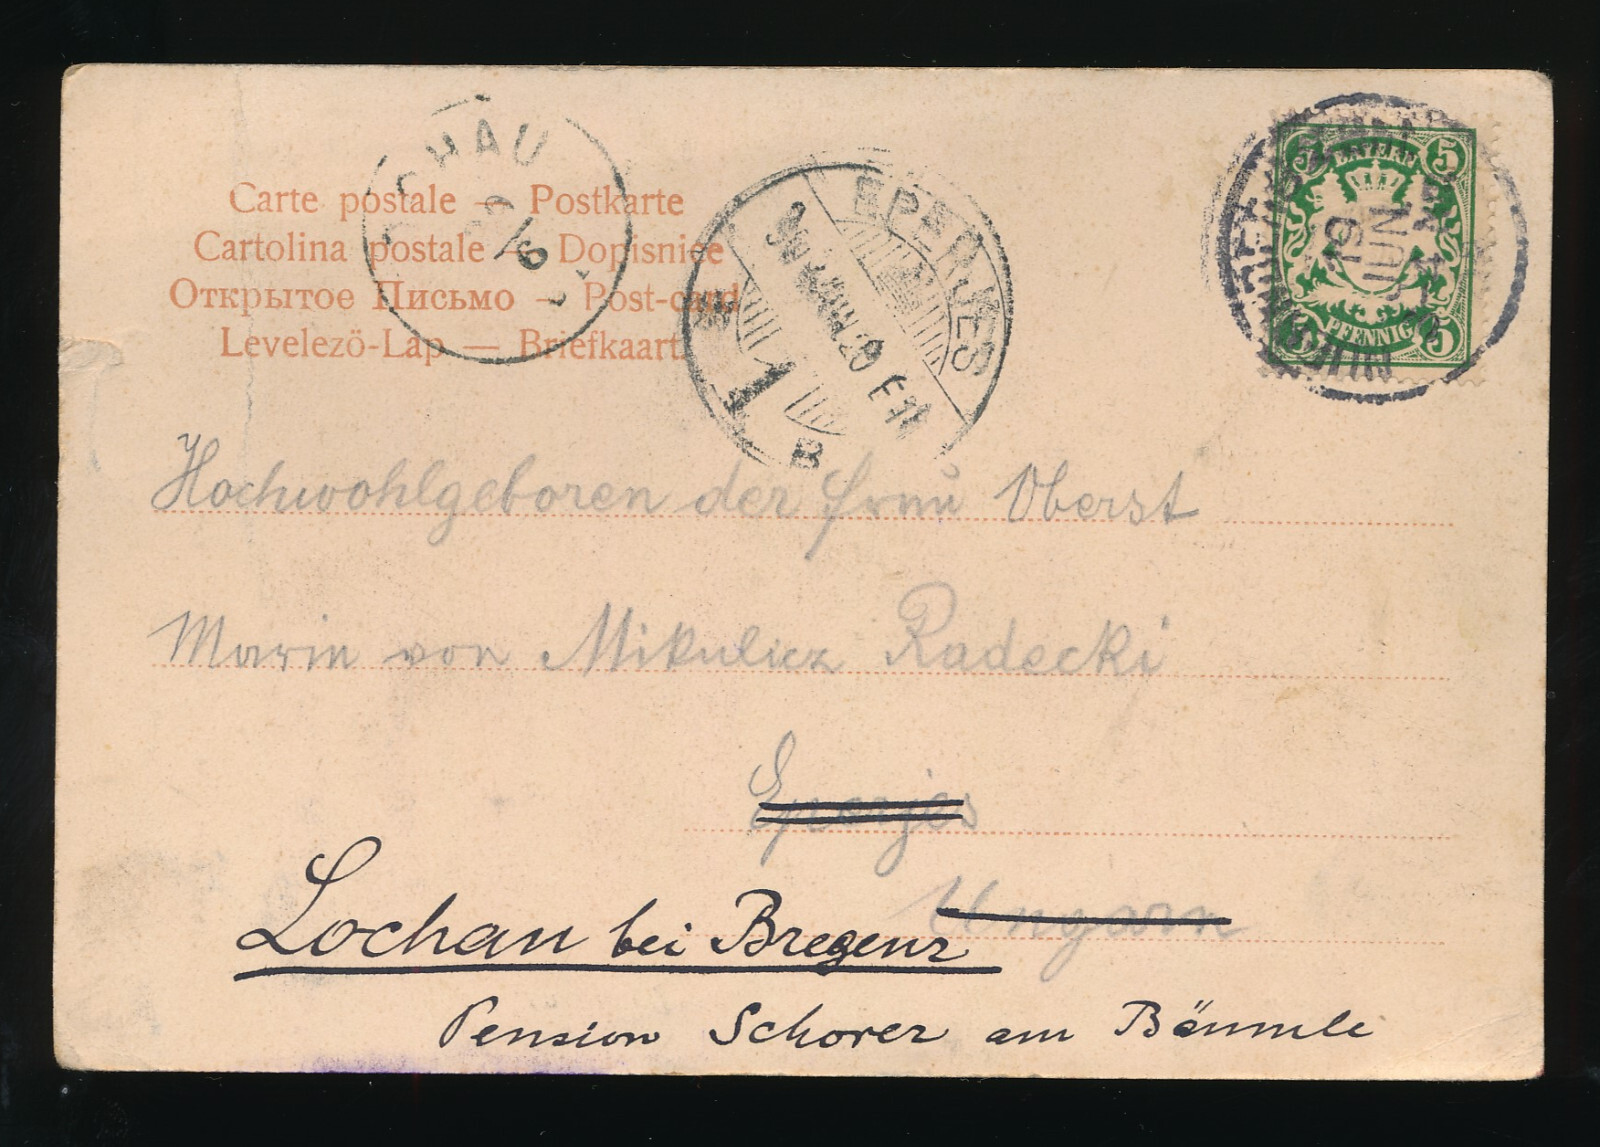 Carte postale — Postkarte
Cartolina postale — Dopisnice
Открытое Письмо — Post-card
Levelezö-Lap — Briefkaart.
CHAU
EPERJES
B
BAYERN
5 5
5 PFENNIG 5
19
JUN
Hochwohlgeboren der Frau Oberst
Marie von Mikulicz Radecki
Eperjes
Ungarn
Lochau bei Bregenz
Pension Schorer am Bäumle